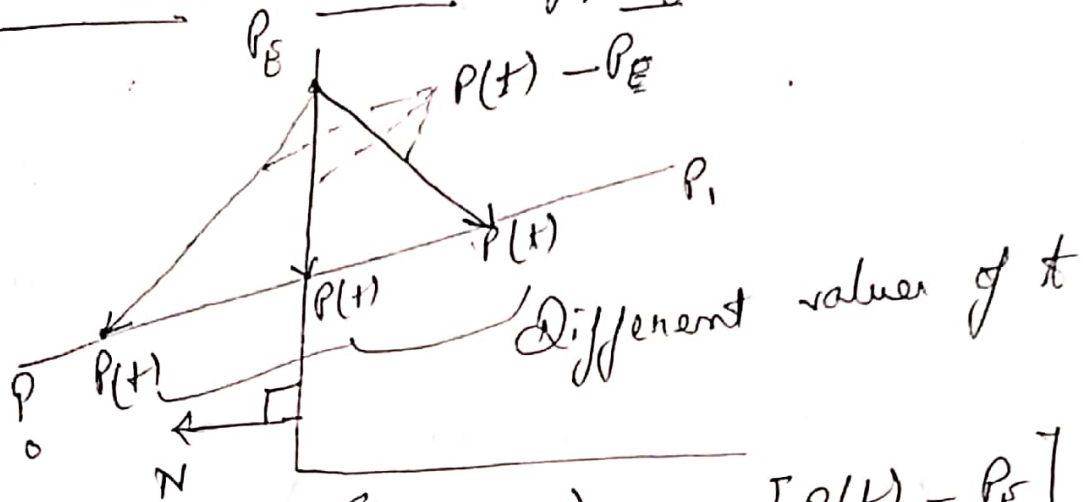 P_E
P(t) - P_E
P_1
P(t)
P(t)
Different values of t
P(t)
P_0
N
[P(t) - P_E]